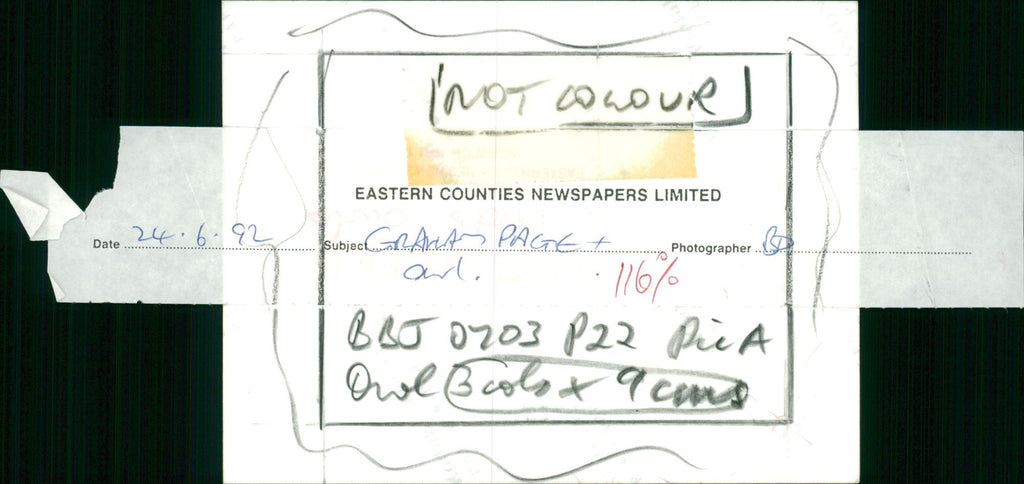 NOT COLOUR
EASTERN COUNTIES NEWSPAPERS LIMITED
Date 24.6.92 Subject GRAHAM PAGE + Photographer
owl.
116%
BBJ 0703 P22 Pic A
Owl 3 cols x 9 cms